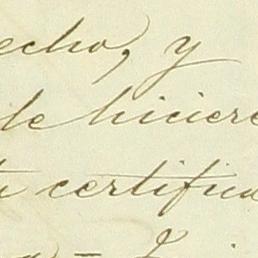 echo, y
le hiciere
certifica